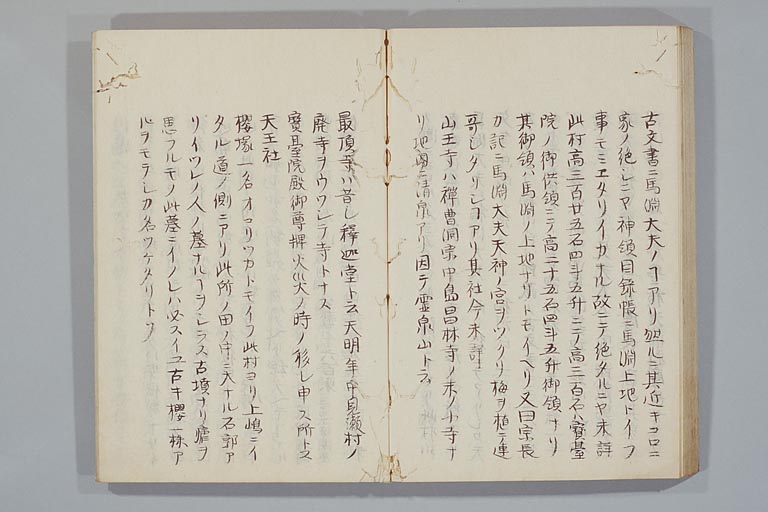 古文書ニ馬淵大夫ノヿアリ然ルニ其近キコロニ
家ノ絶シニヤ神領目録帳ニ馬淵上地トイフ
事モミエタリイカナル故ニテ絶タルニヤ未詳
此村高三百廿五石四斗五升ニテ高三百石ハ寳臺
院ノ御供領ニテ高二十五石四斗五升御領ナリ
其御領ハ馬淵ノ上地ナリトモイヘリ又曰宗長
カ記ニ馬淵大夫天神ノ宮ヲツクリ梅ヲ植テ連
哥シタリシヿアリ其社今未詳
山王寺ハ禪曹洞宗中島昌林寺ノ末ノ小寺ナ
リ地西ニ清泉アリ因テ霊泉山ト云
最頂寺ハ昔シ釋迦堂ト云天明年中瀬村ノ
廃寺ヲウツシテ寺トナス
寳臺院殿御尊牌火災ノ時ノ移シ申ス所トス
天王社
櫻塚一名オコリツカトモイフ此村ヨリ上嶋ニイ
タル道ノ側ニアリ此所ノ田ノ中ニ大ナル石郭ア
リイツレノ人ノ墓ナルヿヲシラス古墳ナリ瘧ヲ
患フルモノ此墓ニイノレハ必スイユ古キ櫻一株ア
ルヲモテシカ名ツケタリトソ